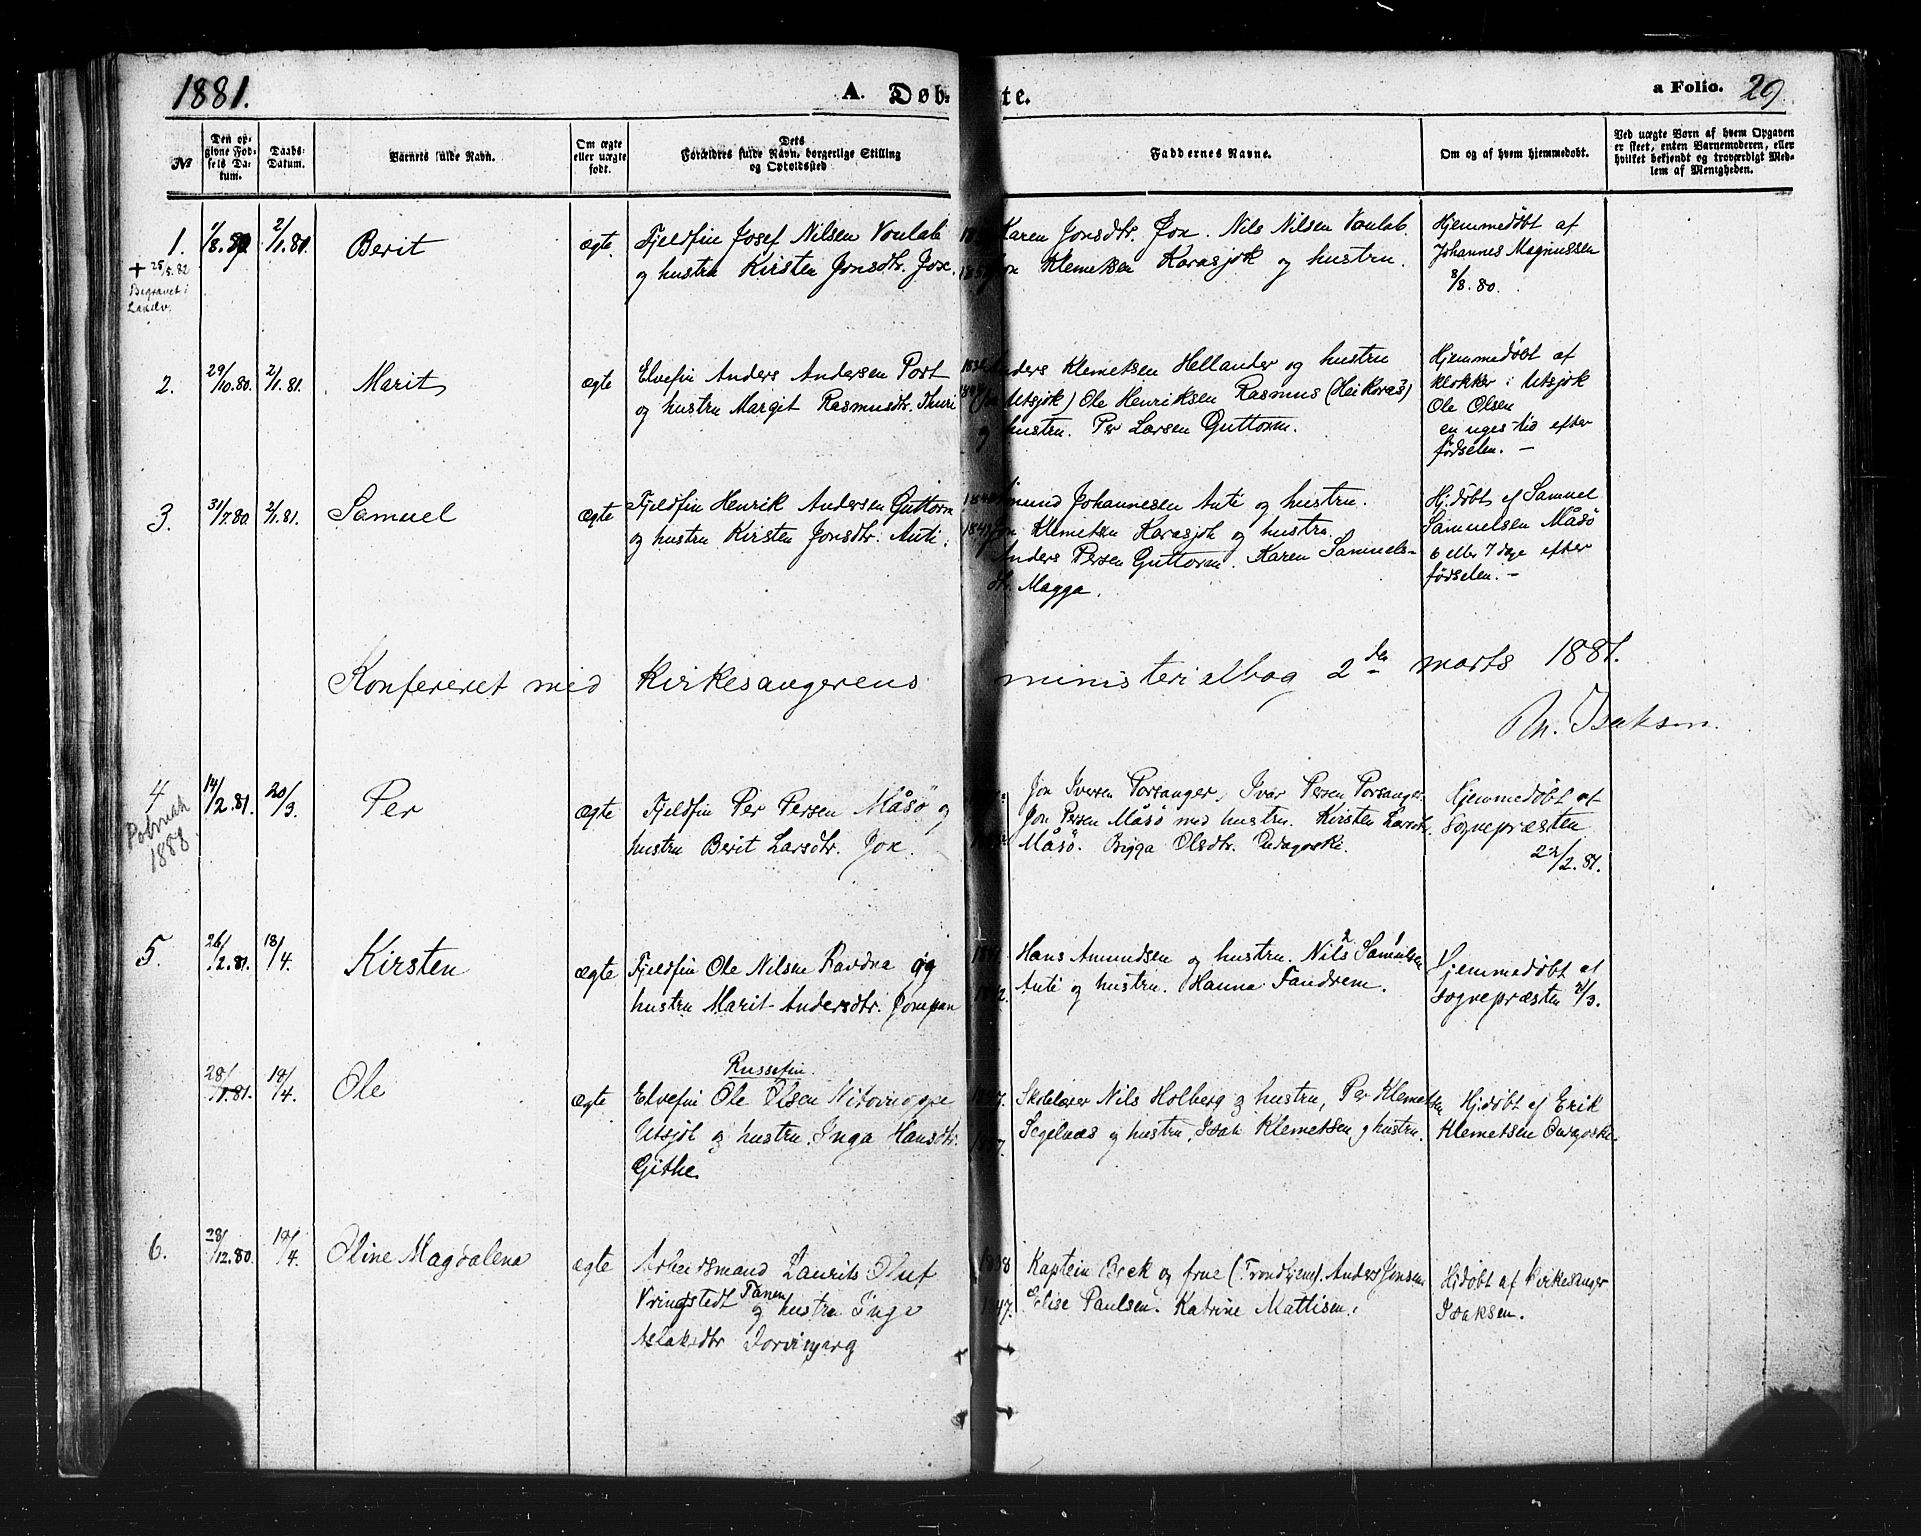 1881.
A. Døb te.
a Folio. 29
No
Den op-
givne Fød-
sels Da-
tum.
Daabs-
Datum.
Barnets fulde Navn.
Om ægte
eller uægte
født.
Dets
Forældres fulde Navn, borgerlige Stilling
og Opholdssted
Faddernes Navne.
Om og af hvem hjemmedøbt.
Ved uægte Børn af hvem Opgaven
er skeet, enten Barnemoderen, eller
hvilket bekjendt og troværdigt Med-
lem af Menigheden.
1.
+ 25/5.82
Begravet i
1/8.80
2/1.80.
Berit
ægte.
Fjeldfin Josef Nilsen Voulab
og hustru Kirsten Jonsdtr. Jox.
Karen Jonsdtr. Jox. Nils Nilsen Voulab.
Jon Klemetsen Karasjok og hustru.
Hjemmedøbt af
Johannes Magnussen
8/8.80.
2.
29/10.80.
2/1.81.
Marit
ægte
Elvefin Anders Andersen Port
og hustru Margit Rasmusdtr. Thuri
Anders Klemetsen Hellander og hustru
(fra Utsjok) Ole Henriksen Rasmus (Heikoras?)
og hustru. Per Larsen Guttorm.
Hjemmedøbt af
klokker i Utsjok
Ole Olsen
en uges tid efter
fødselen. —
3.
31/7.80.
2/1.81.
Samuel
ægte
Fjeldfin Henrik Andersen Guttorm
og hustru Kirsten Jonsdtr. Anti.
Amund Johannesen Anti og hustru.
Jon Klemetsen Karasjok og hustru.
Anders Persen Guttorm. Karen Samuels-
dtr. Magga.
Hj.døbt af Samuel
Samuelsen Måsø
6 eller 7 dage efter
fødselen. —
Konfereret med kirkesangerens ministerialbog 2den marts 1881.
Isaksen.
4
Polmak
1888
14/2.81.
20/3.
Per
ægte
Fjeldfin Per Persen Måsø og
hustru Berit Larsdtr. Jox.
Jon Iversen Porsanger, Ivar Persen Porsanger.
Jon Persen Måsø med hustru. Kirsten Larsdtr.
Måsø. Bigga Olsdtr.
Hjemmedøbt af
sognepræsten
22/2.81.
5.
26/2.81.
18/4.
Kirsten
ægte
Fjeldfin Ole Nilsen Ravdna og
hustru Marit Andersdtr. Jompan
Hans Amundsen og hustru. Nils 2 Samuelsen 1
Anti og hustru. Hanna Fandrem.
Hjemmedøbt af
sognepræsten 2/3.
28/1.81.
19/4.
Ole
ægte
Russefin.
Elvefin Ole Olsen
Utsjok og hustru Inga Hansdtr.
Githe.
Skolelærer Nils Holberg og hustru, Per Klemetsen
Segelnæs og hustru, Isak Klemetsen og hustru.
Hj.døbt af Erik
Klemetsen
6.
28/12.80.
19/4.
Oline Magdalena
ægte
Arbeidsmand Laurits Oluf
Vringstedt Tanen og hustru Inge
Aslaksdtr
1838
1847.
Kaptein Beck og frue (Trondhjem). Anders Jonsen
Elise Paulsen. Katrine Mattisen.
Hj.døbt af kirkesanger
Isaksen.